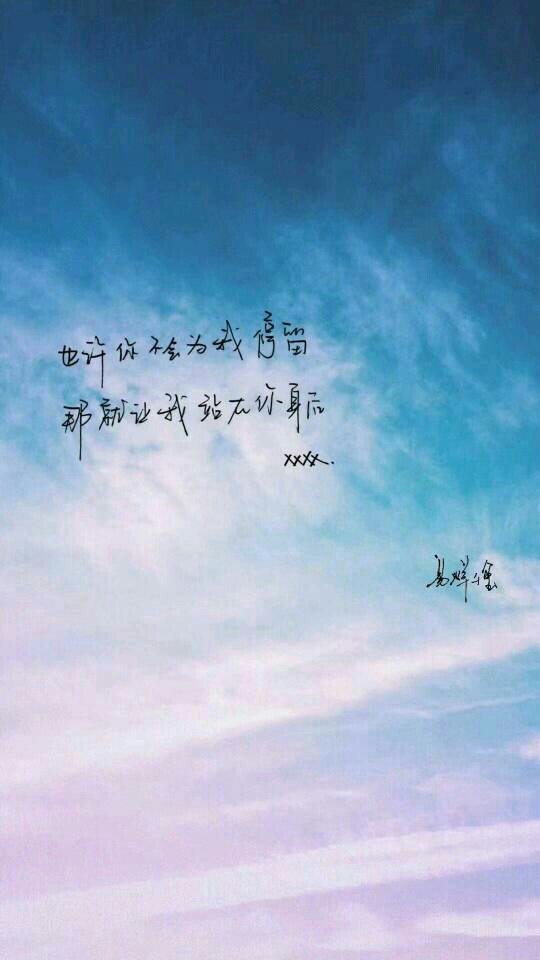 也许你不会为我停留
那就让我站在你身后
xxxx.
易烊千玺